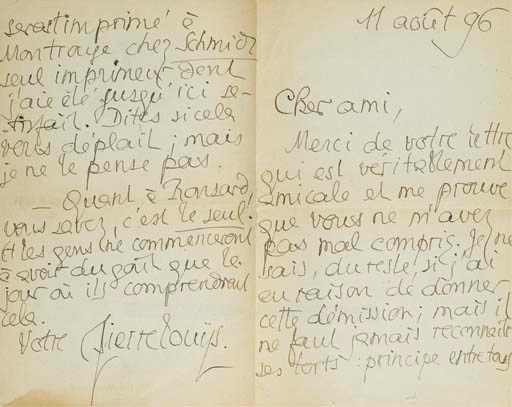 11 août 96
Cher ami,
Merci de votre lettre
qui est véritablement
amicale et me prouve
que vous ne m'avez
pas mal compris. Je ne
sais, du reste, si j'ai
eu raison de donner
cette démission ; mais il
ne faut jamais reconnaître
ses torts : principe entre tous
serait imprimé à
Montrouge chez Schmidt
seul imprimeur dont
j'aie été jusqu'ici sa-
tisfait. Dites si cela
vous déplait ; mais
je ne le pense pas.
— Quant à Ronsard,
vous savez, c'est le seul !
Et les gens ne commenceront
à avoir du goût que le
jour où ils comprendront
cela.
Votre Pierre Louÿs.